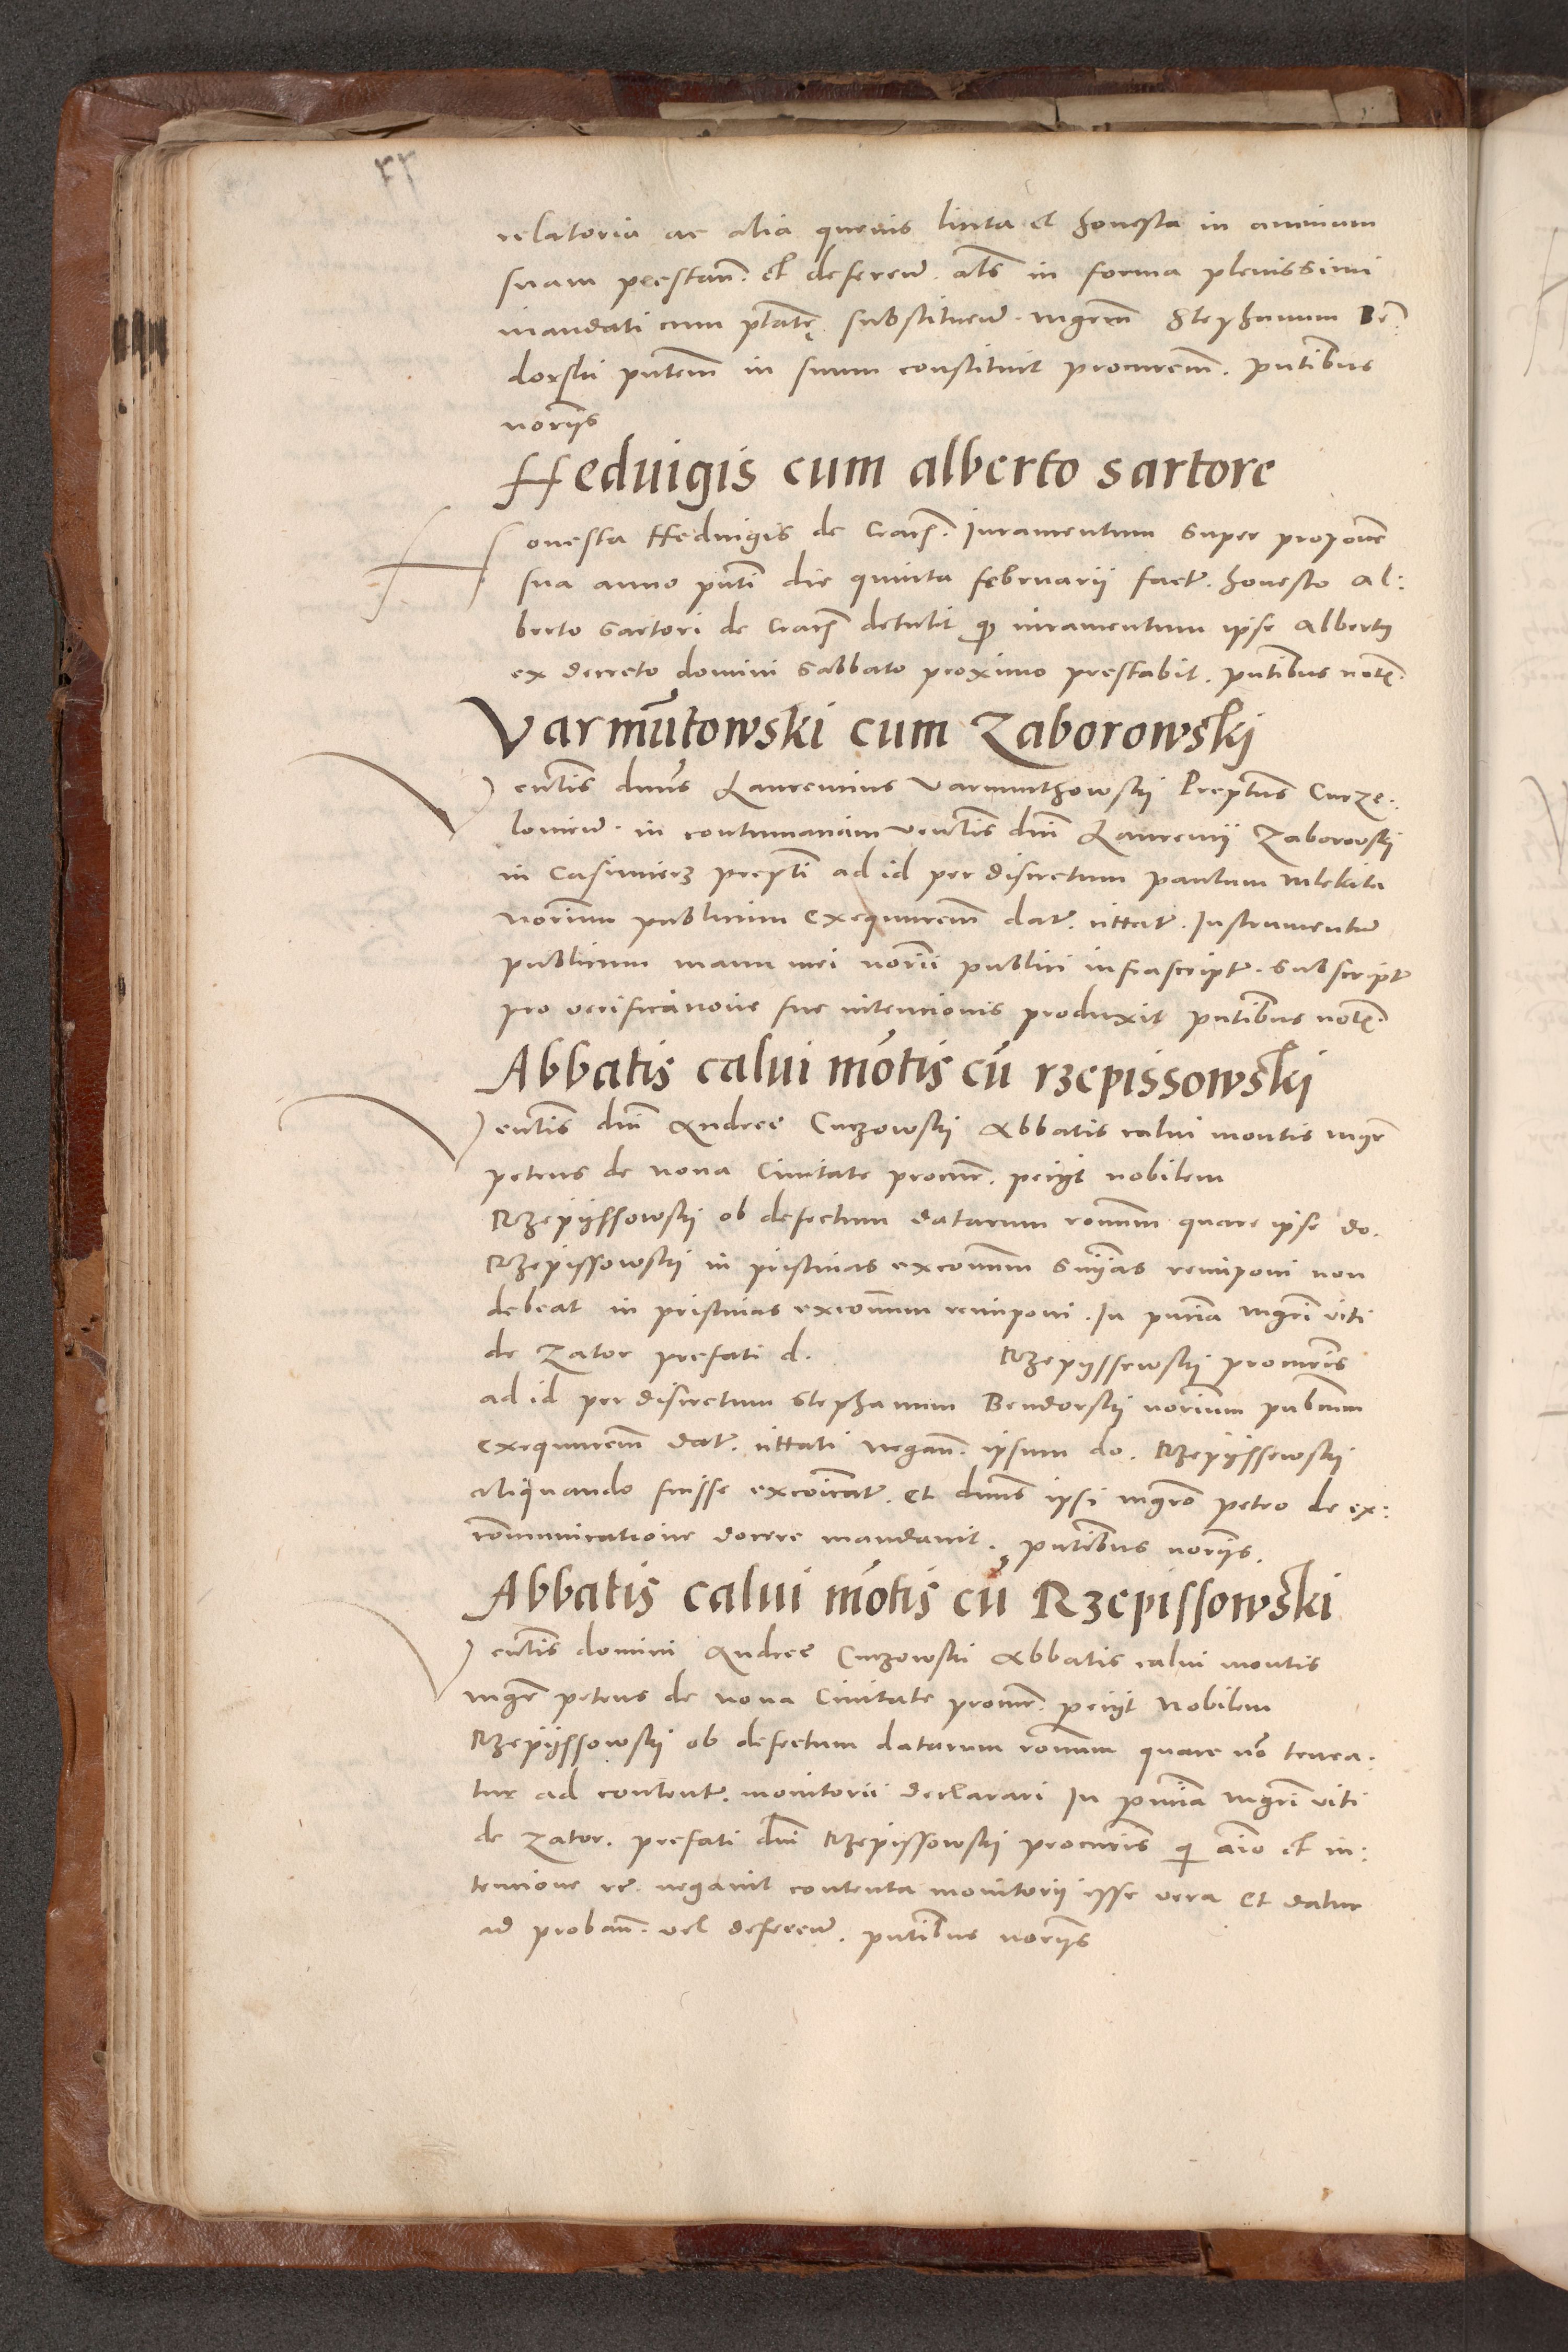 relatoria ac alia quevis licita et honesta in animam
suam prestan. et deferen. als in forma plenissimi
mandati cum ptate substituen. mgrm Stephanum Be:
dorski pntem in suum constituit procurem. pntibus
noriis
Heduigis cum alberto sartore
Honesta Heduigis de Crac. Iuramentum super propone
sua anno pnti die quinta februarii fact. honesto Al:
berto sartori de Crac. detulit q iuramentum ipse Albertus
ex decreto domini sabbato proximo prestabit. pntibus not.
Varmutowski cum Zaborowskj
Venlis dnus Laurencius Varmunthowskij Preptus Curze.
lovien. in contumaciam venlis dni Laurencij Zaborowskij
in Casimierz prepti ad id per discretum paulum mlekita
norium publicum exequutrem dat. cittat. Instrumentu
publicum manu mei norii publici infrascript. subscript
pro verificacione sue intencionis produxit pntibus not.
Abbatis calui motis cu rzepissowskj
Venlis dni Andree Curzowskij Abbatis calui montis mgr
petrus de nova Civitate procur. peciit nobilem
Rzepijssowskij ob defectum datarum ronum quare ipse do.
Rzepissowskij in pristinas excomm snias reimponi non
debeat in pristinas excomum reimponi. In pncia mgri viti
de Zator prefati d. Rzepijssewskij procuris
ad id per discretum Stephanum Bendorskij norium publicum
exequutrem dat. cittati negan. ipsum do. Rzepijssewskij
aliquando fuisse excoicat. et dnus ipsi mgro petro de ex:
comunicatione docere mandavit. pntibus noriis.
Abbatis calui motis cu Rzepissowski
Venlis domini Andree Curzowski Abbatis calui montis
mgr petrus de nova Civitate procur. peciit Nobilem
Rzepijssowskij ob defectum datarum ronum quare no tenea.
tur ad content. monitorii declarari In pncia mgri viti
de Zator. prefati dni Rzepissowskij procuris q aio et in:
tencione re. negavit contenta monitorij esse vera et datur
ad proban. vel deferen. pntibus noriis